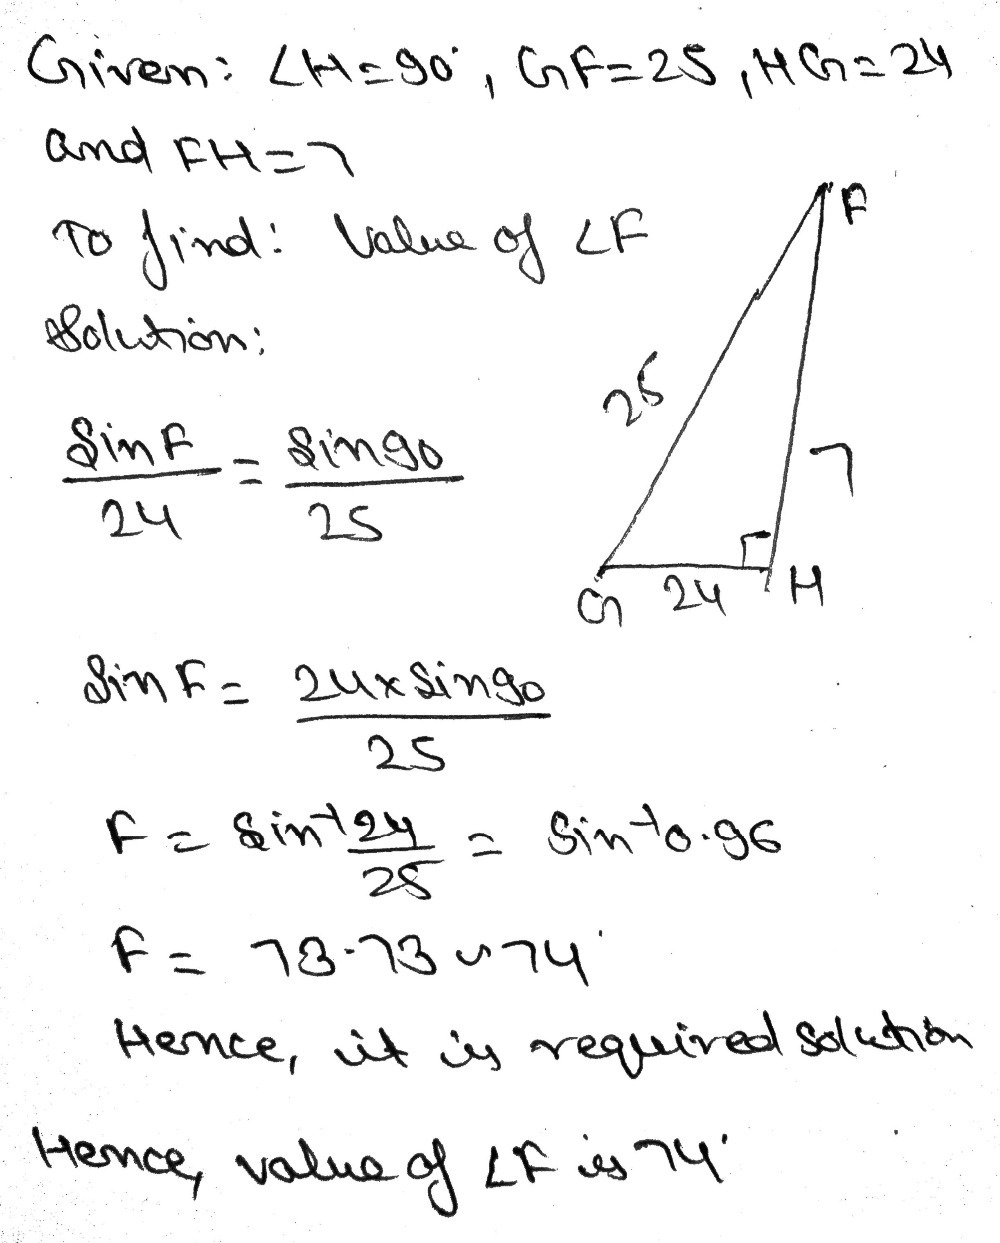 Given: ∠H=90°, GF=25, HG=24
and FH=7
To find: Value of ∠F
Solution:
F
25
7
G 24 H
Sin F/24 = Sin 90/25
Sin F = 24×Sin 90/25
F = Sin⁻¹ 24/25 = Sin⁻¹ 0.96
F = 73.73 ∽ 74°
Hence, it is required solution
Hence, value of ∠F is 74°